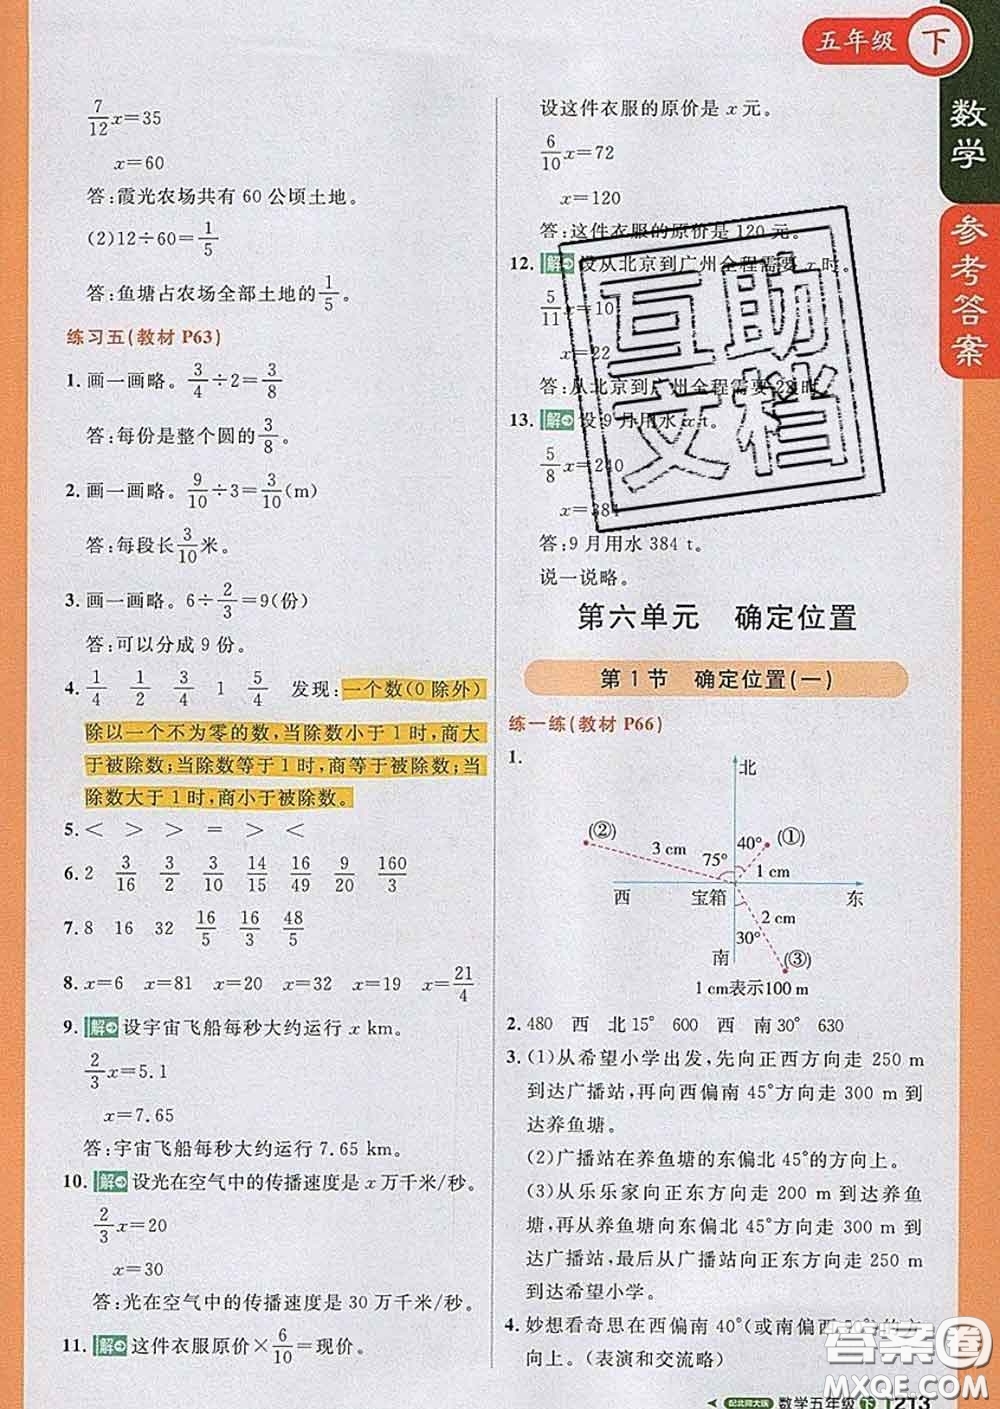 五年级 下
数学
参考答案
7/12 x=35
x=60
答:霞光农场共有 60 公顷土地。
(2)12÷60=1/5
答:鱼塘占农场全部土地的1/5。
练习五(教材 P63)
1. 画一画略。3/4÷2=3/8
答:每份是整个圆的3/8。
2. 画一画略。9/10÷3=3/10(m)
答:每段长3/10米。
3. 画一画略。6÷2/3=9(份)
答:可以分成 9 份。
4. 1/4 1/2 3/4 1 5/4 发现:一个数(0 除外)
除以一个不为零的数,当除数小于 1 时,商大
于被除数;当除数等于 1 时,商等于被除数;当
除数大于 1 时,商小于被除数。
5. < > > = > <
6. 2 3/16 3/2 3/10 14/15 16/49 9/20 160/3
7. 8 16 32 16/5 16/3 48/5
8. x=6 x=81 x=20 x=32 x=19 x=21/4
9. 解 设宇宙飞船每秒大约运行 x km。
2/3 x=5.1
x=7.65
答:宇宙飞船每秒大约运行 7.65 km。
10. 解 设光在空气中的传播速度是 x 万千米/秒。
2/3 x=20
x=30
答:光在空气中的传播速度是 30 万千米/秒。
11. 解 这件衣服原价×6/10=现价。
设这件衣服的原价是 x 元。
6/10 x=72
x=120
答:这件衣服的原价是 120 元。
12. 解 设从北京到广州全程需要 x 时。
5/11 x=10
x=22
答:从北京到广州全程需要 2 时。
13. 解 设 9 月用水 x t。
5/8 x=240
x=384
答:9 月用水 384 t。
说一说略。
互助
文档
第六单元 确定位置
第 1 节 确定位置(一)
练一练(教材 P66)
1.
北
(②) 3 cm 75° 40° (①)
1 cm
西 宝箱 东
2 cm
30°
南 (③)
1 cm表示100 m
2. 480 西 北15° 600 西 南30° 630
3. (1)从希望小学出发,先向正西方向走 250 m
到达广播站,再向西偏南 45°方向走 300 m 到
达养鱼塘。
(2)广播站在养鱼塘的东偏北 45°的方向上。
(3)从乐乐家向正东方向走 200 m 到达养鱼
塘,再从养鱼塘向东偏北 45°方向走 300 m 到
达广播站,最后从广播站向正东方向走 250 m
到达希望小学。
4. 妙想看奇思在西偏南 40°(或南偏西 50°)的方
向上。(表演和交流略)
答案圈
MXQE.COM
配北师大版 数学五年级 下 213